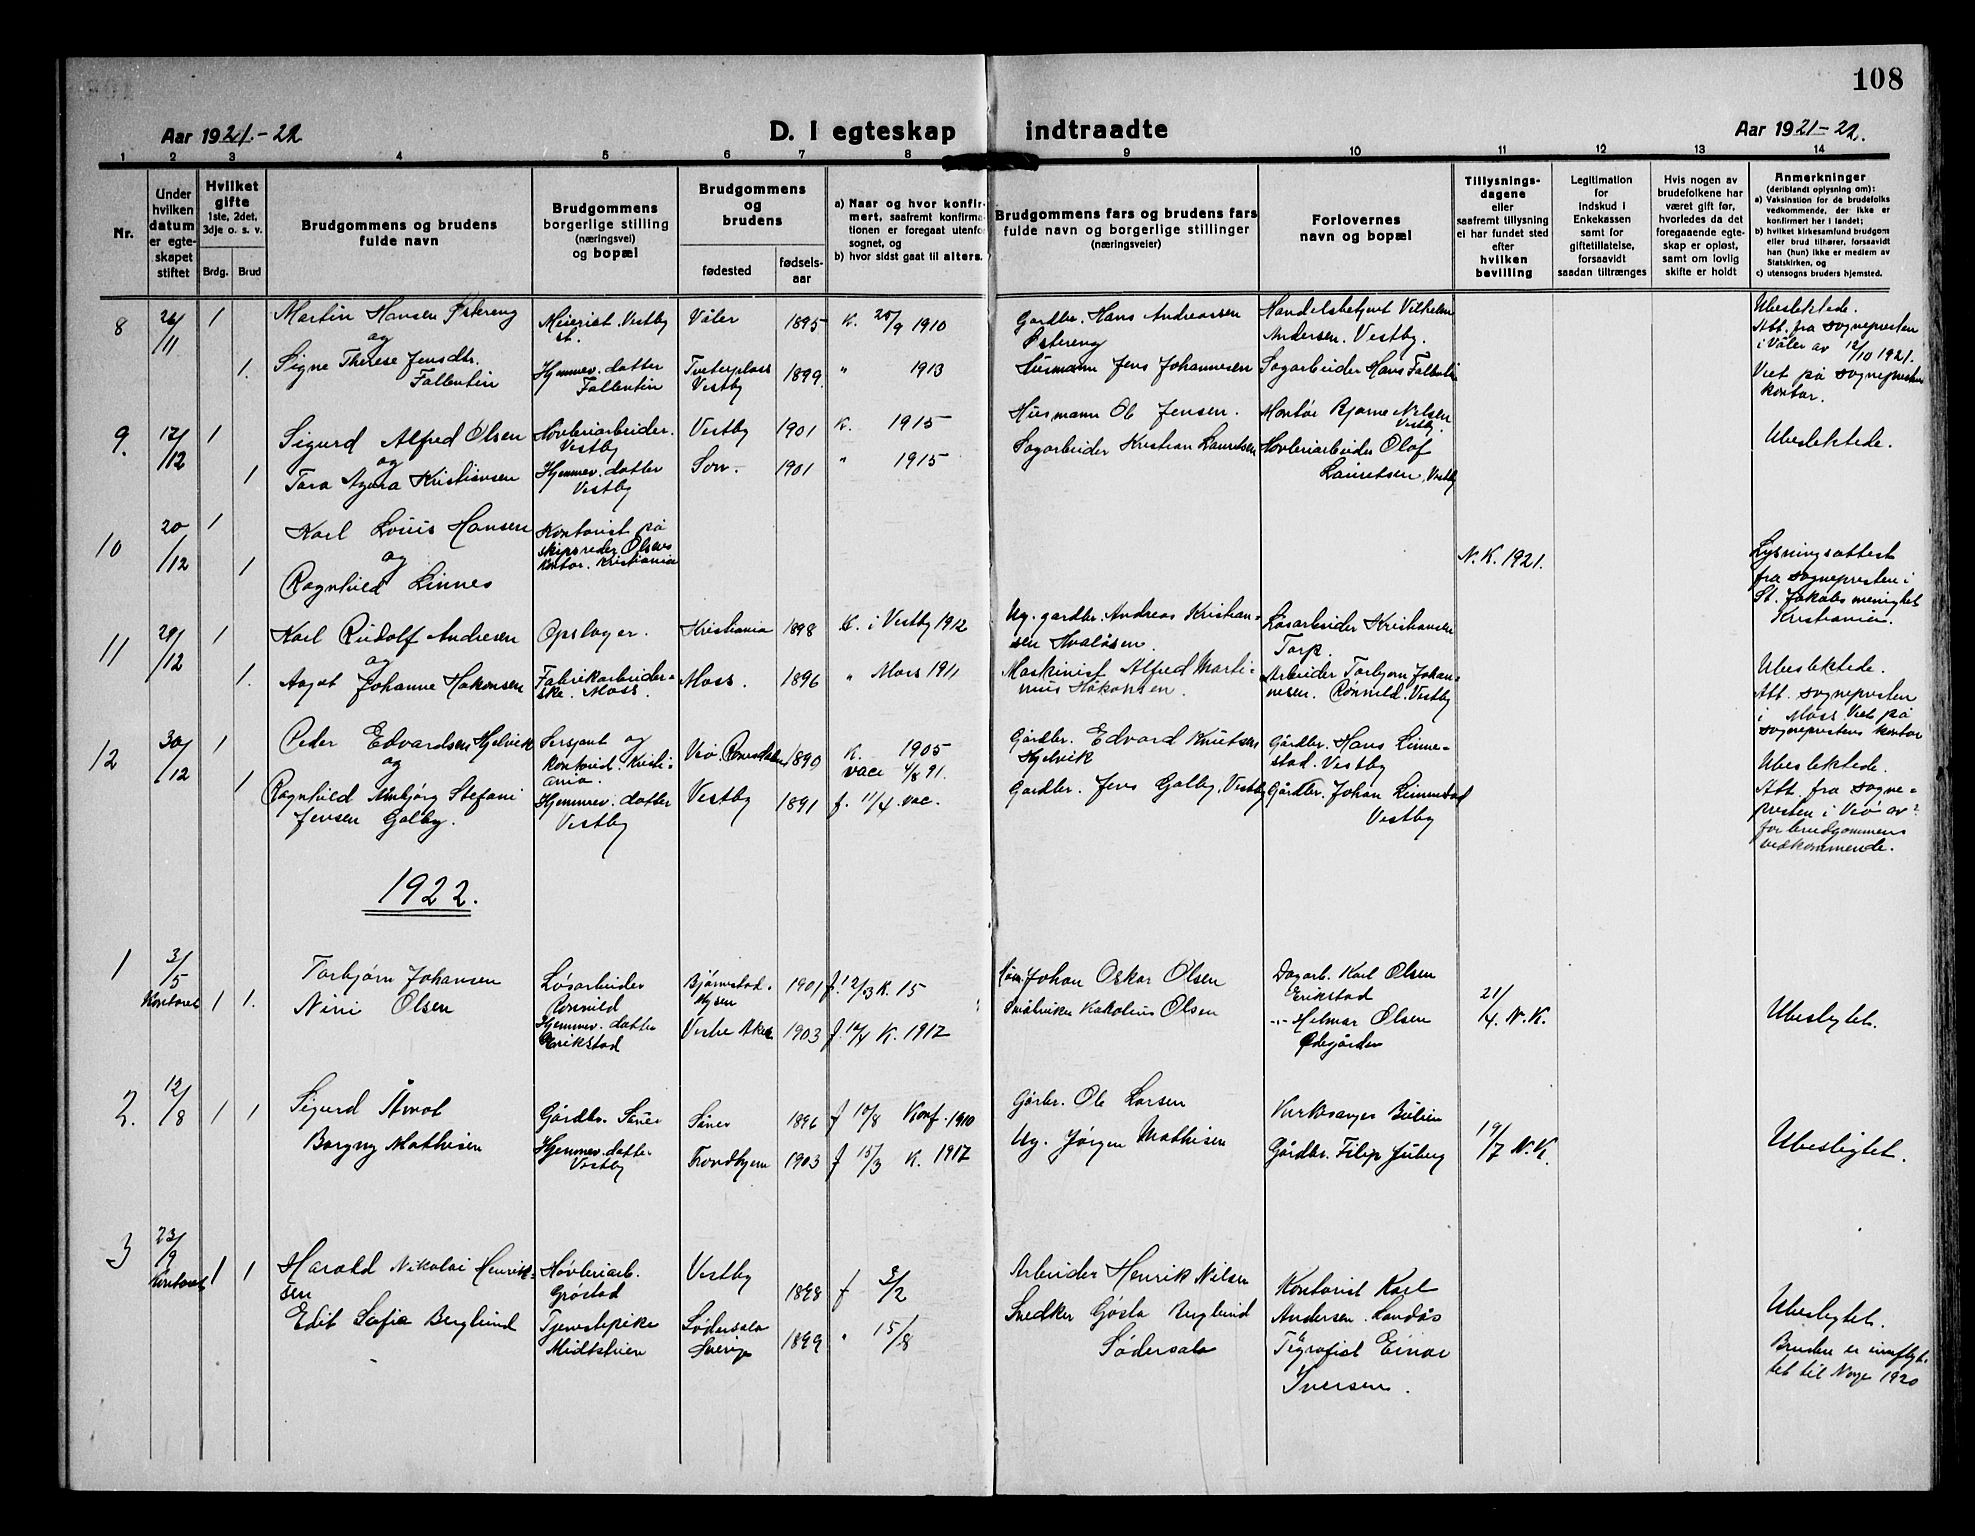 108
Aar 1921.-22
D. I egteskap indtraadte
Aar 1921-22.
1 2 3 4 5 6 7 8 9 10 11 12 13 14
Nr.
Under
hvilken
datum
er egte-
skapet
stiftet
Hvilket
gifte
1ste, 2det,
3dje o. s. v.
Brdg. Brud
Brudgommens og brudens
fulde navn
Brudgommens
borgerlige stilling
(næringsvei)
og bopæl
Brudgommens
og
brudens
fødested
fødsels-
aar
a) Naar og hvor konfir-
mert, saafremt konfirma-
tionen er foregaat utenfor
sognet, og
b) hvor sidst gaat til alters.
Brudgommens fars og brudens fars
fulde navn og borgerlige stillinger
(næringsveier)
Forlovernes
navn og bopæl
Tillysnings-
dagene
eller
saafremt tillysning
ei har fundet sted
efter
hvilken
bevilling
Legitimation
for
indskud i
Enkekassen
samt for
giftetillatelse,
forsaavidt
saadan tiltrænges
Hvis nogen av
brudefolkene har
været gift før,
hvorledes da det
foregaaende egte-
skap er opløst,
samt om lovlig
skifte er holdt
Anmerkninger
(deriblandt oplysning om):
a) Vaksination for de brudefolks
vedkommende, der ikke er
konfirmert her i landet;
b) hvilket kirkesamfund brudgom
eller brud tilhører, forsaavidt
han (hun) ikke er medlem av
Statskirken, og
c) utensogns bruders hjemsted.
8 26/11 1 Martin Hansen Østereng
og
Meierist. Vestby
st.
Våler 1895 K. 25/9 1910
Gardbr. Hans Andreassen
Østereng
Handelsbetjent Vilhelm
Andersen. Vestby.
Ubeslektede.
Att. fra sognepresten
i Våler av 12/10 1921.
Viet på sogneprestens
kontor.
1. Signe Therese Jensdtr.
Fallentin
Hjemmev. datter
Fallentin
Tveterplass
Vestby
1899 " 1913
Husmann Jens Johannesen
Sagarbeider Hans Fallentin
9. 17/12 1 Sigurd Alfred Olsen
og
Høvleriarbeider.
Vestby
Vestby 1901 K. 1915
Husmann Ole Jensen.
Montør Bjarne Nilsen
Vestby.
Ubeslektede.
1 Tora Agnora Kristiansen
Hjemmev. datter
Vestby
Son. 1901 " 1915
Sagarbeider Kristian Lauritsen
Høvleriarbeider Olaf
Lauritsen, Vestby
10 20/12 1 Karl Louis Hansen
og
1 Ragnhild Linnes
Kontorist på
skipsreder Olsens
kontor. Kristiania
N. K. 1921.
Lysningsattest
fra sognepresten i
St. Jakobs menighet
Kristiania.
11 29/12 1 Karl Rudolf Andresen
og
Opslager.
Kristiania 1898 K. i Vestby 1912
Ug. gardbr. Andreas Kristian-
sen Hvaløsen.
Løsarbeider Kristiansen
Torp.
1. Aagot Johanne Håkonsen
Fabrikarbeider-
ske. Moss.
Moss. 1896 " Moss 1911
Maskinist Alfred Marti-
nius Håkonsen.
Arbeider Torbjørn Johan-
nesen. Rønnild. Vestby
Ubeslektede.
Att. sognepresten
i Moss. Viet på
sogneprestens kontor
12 30/12 1 Peder Edvardsen Hjelvik
og
Sersjant og
kontorist. Kristi-
ania.
Veø Romsdalen 1890 K. 1905
vacc 4/8 91.
Gårdbr. Edvard Knutsen
Hjelvik
Gårdbr. Hans Linne-
stad. Vestby
Ubeslektede.
Att. fra sogne-
presten i Veø av
for brudgommens
vedkommende.
1 Ragnhild Stefani
Jensen Galby.
Hjemmev. datter
Vestby
Vestby 1891 f. 11/4. vac.
Gardbr. Jens Galby, Vestby
Gårdbr. Johan Linnestad
Vestby
1922.
1 3/5
Kontoret 1 1.
Torbjørn Johansen
Nini Olsen
Løsarbeider
Rønnild
Hjemmev. datter
Erikstad
Bjørnstad.
1901 f. 12/3 K. 15
Vestre Aker 1903 f. 12/4 K. 1917
Johan Oskar Olsen
Olsen
Dagarb. Karl Olsen
Erikstad
-"- Helmar Olsen
Ødegården
21/4. N. K.
Ubeslegtet.
2. 12/8 1 1 Sigurd Åmot
Borgny Mathisen
Gårdbr. Såner
Hjemmev. datter.
Vestby
Såner 1896 f 10/8 Konf. 1910
Trondhjem 1903 f 15/3 K. 1917
Gårbr. Ole Larsen
Ug. Jørgen Mathisen
Kirkesanger
Gårdbr. Filip Juberg
19/7 N. K.
Ubeslegtet.
3 23/9
Kontoret 1 1
Harald Nikolai Henrik-
sen
Edit Sofie Berglund
Høvleriarb.
Grøstad
Tjenestepike
Midtskien
Vestby 1898 f 3/2
Södersala
Sverige
1899 " 15/8
Arbeider Henrik Nilsen
Snedker Gøsta Berglund
Södersala
Kontorist Karl
Andersen. Randås
Tlgrafist Einar
Iversen.
Ubeslegtet.
Bruden er innflyt-
tet til Norge 1920